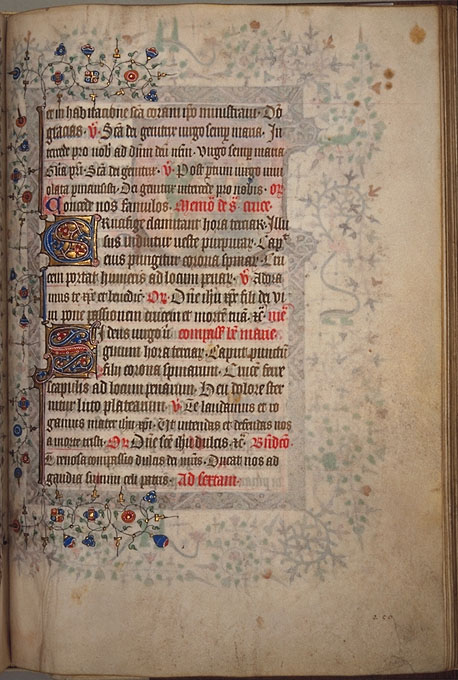 et in habitatione sca coram ipo ministraui. Do
gracias. V. Sca dei genitrix uirgo semp maria. In
tercede pro nob ad dnm deu nrm. Virgo semp maria
Sca dei genitrix. V. Post ptum uirgo inui
olata pmansisti. Dei genitrix intercede pro nobis. or
Concede nos famulos. Memo de s cruce.
Crucifige clamitant hora terciar. Illu
sus induitur ueste purpurar. Cap
eius pungitur corona spinar. Cru
cem portat humeris ad locum penar. V. Adora
mus te xpe et benedic. Or. Dne ihu xpe fili dei ui
ui pone passionem crucem et morte tua. &c.
Videns uirgo compass be marie.
figuerunt hora terciar. Caput punctum
filij corona spinarum. Crucem ferre
scapulis ad locum penarum. Heu dolore ster
nitur luto platearum. V. Te laudamus et ro
gamus mater ihu xpi. Ut intendas et defendas nos
a morte tristi. Or. Dne sce ihu dulcis. &c.
penosa compassio dulcis dei mris. Ducat nos ad
gaudia summi celi patris. Ad sextam.